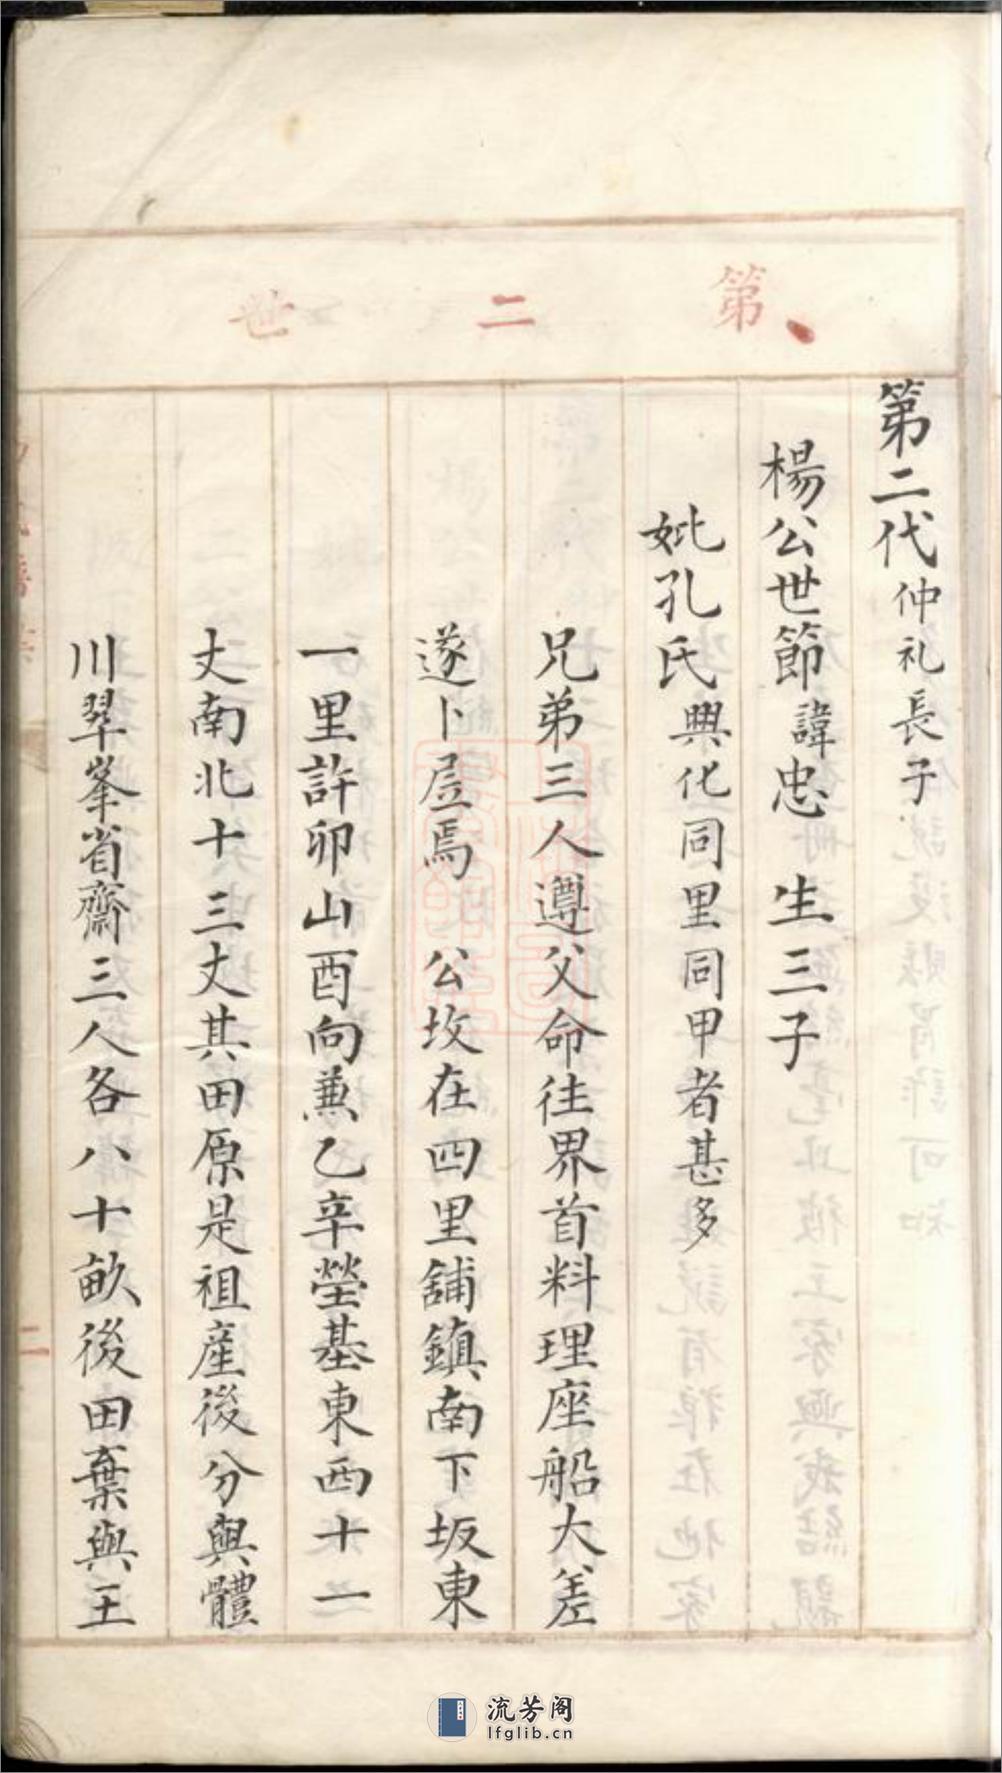 第二世
第二代仲礼長子
楊公世節諱忠 生三子
妣孔氏興化同里同甲者甚多
兄弟三人遵父命往界首料理座船大差
遂卜居焉 公坟在四里舖鎮南下坂東
一里許卯山酉向兼乙辛塋基東西十一
丈南北十三丈其田原是祖産後分與體
川翠峯省齋三人各八十畝後田葉與王
二
流芳阁
lfglib.cn